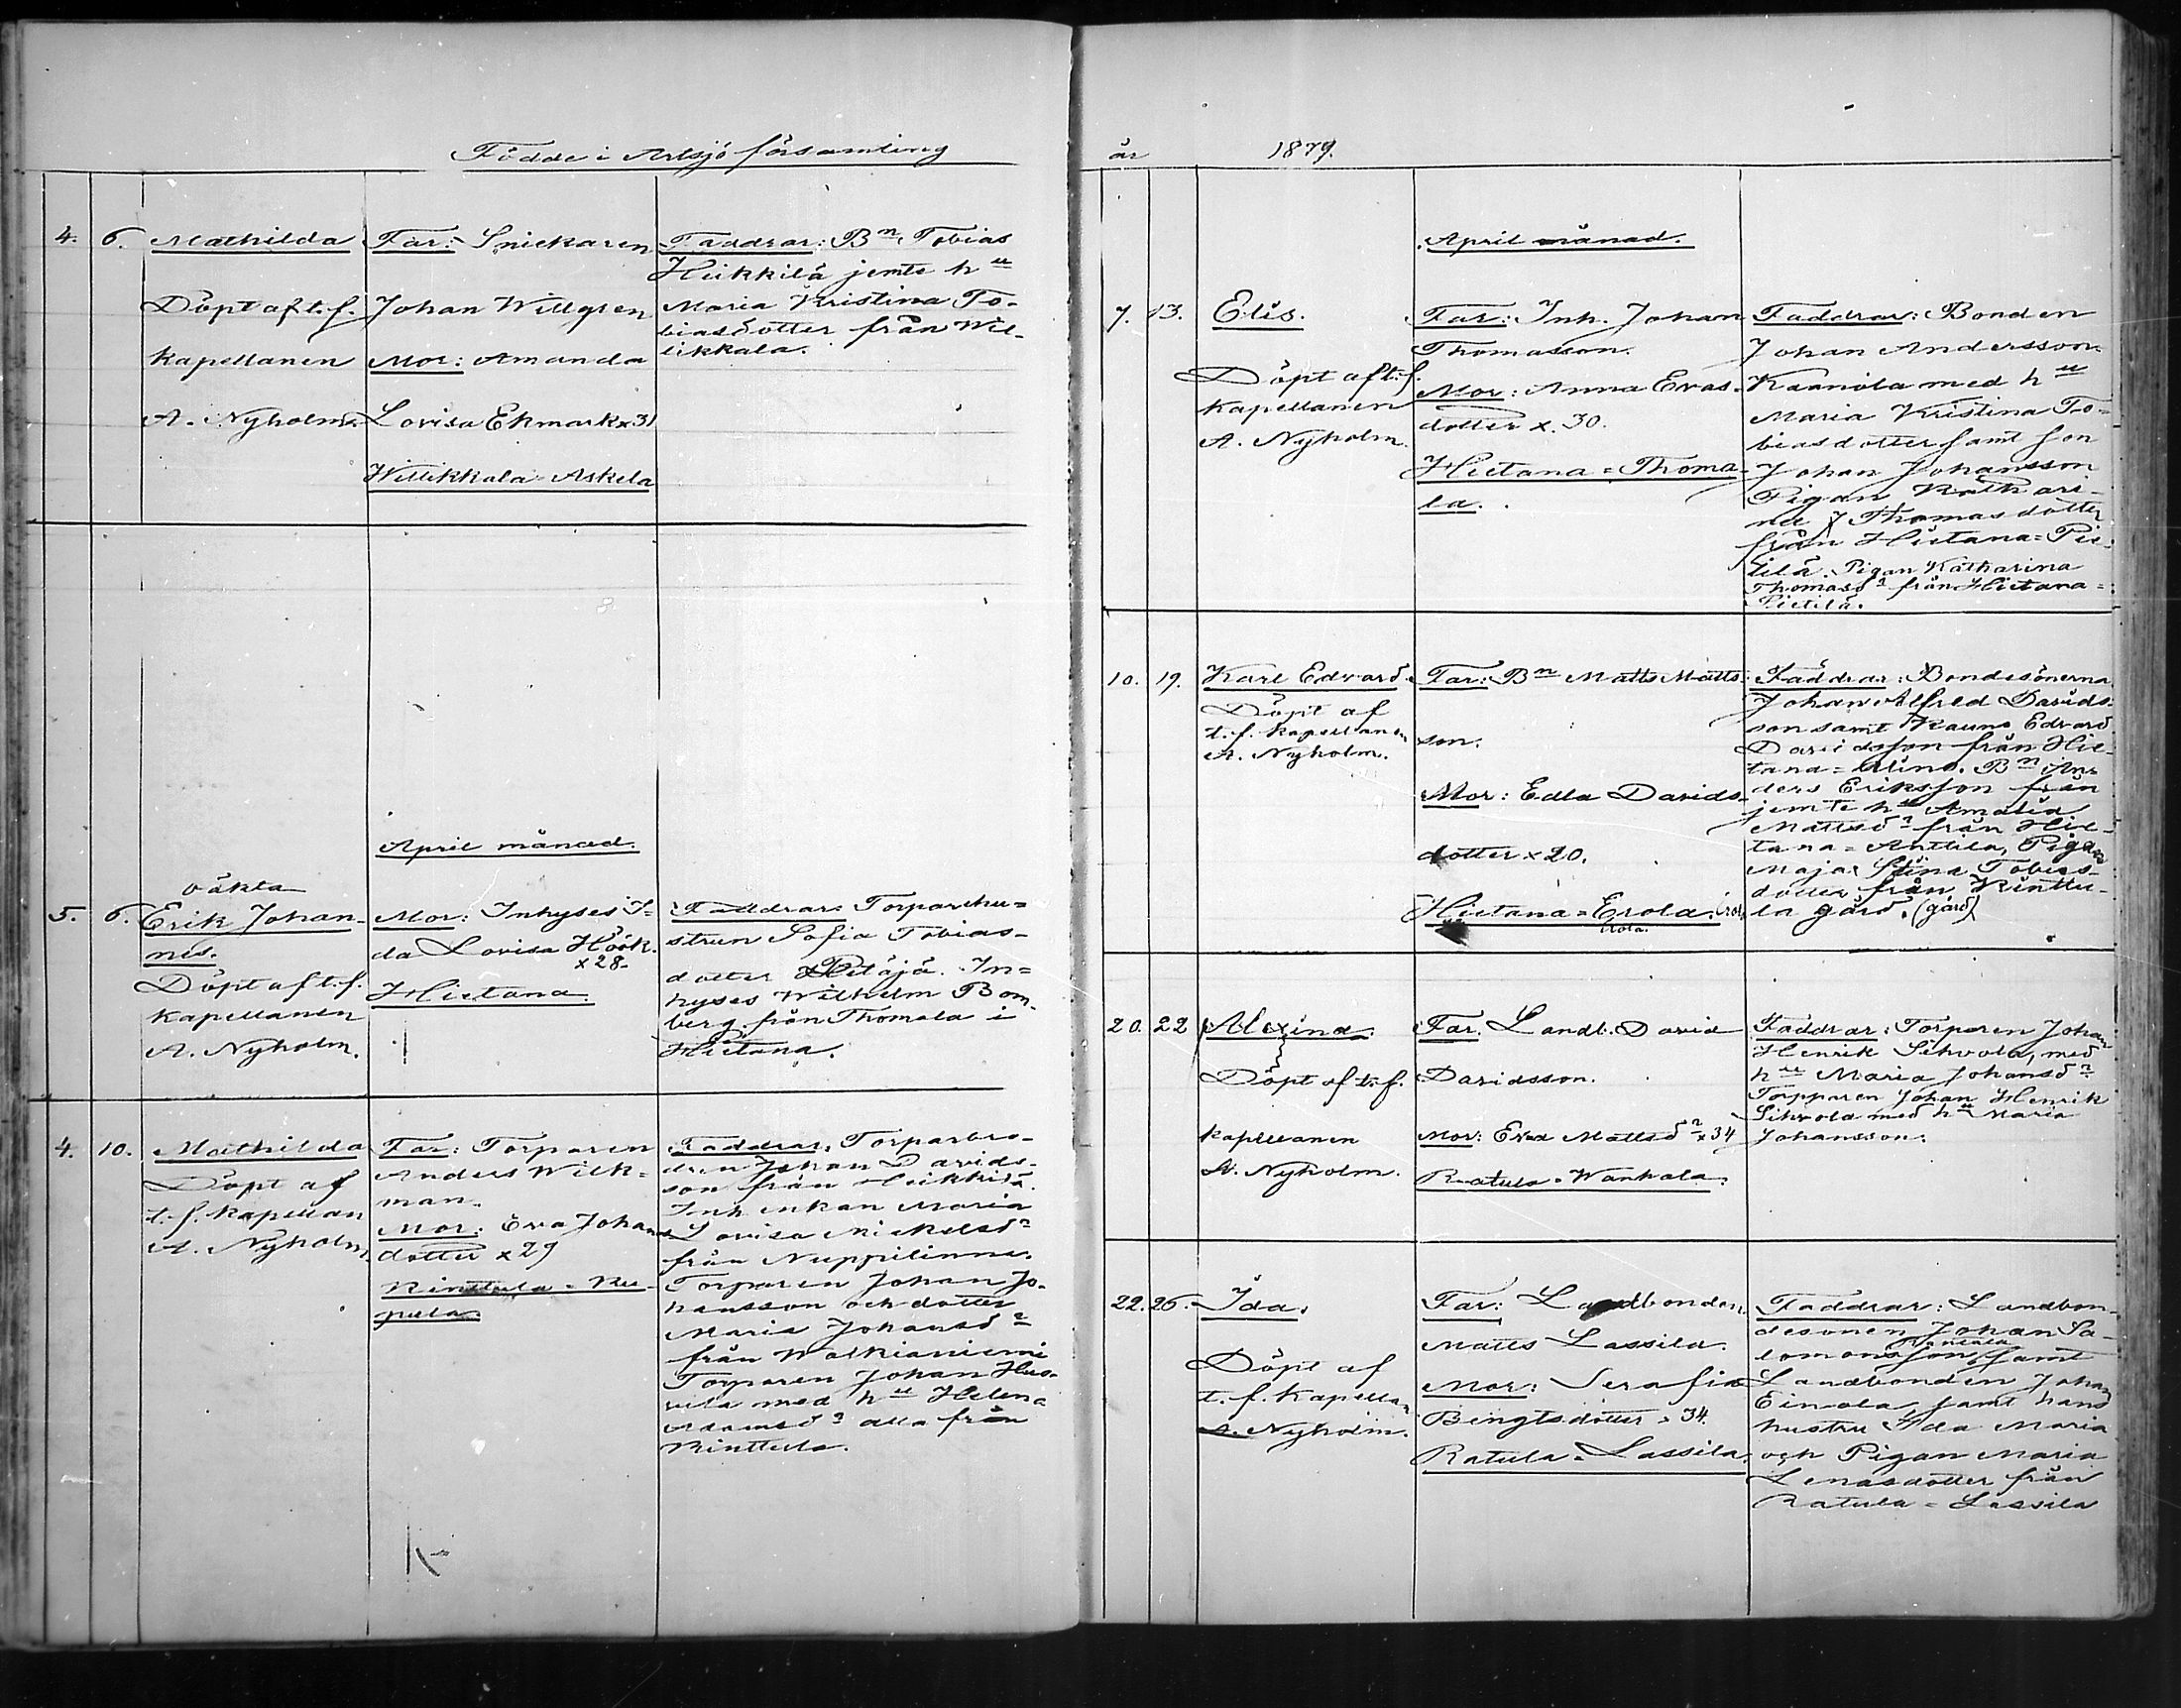 Födde i Artsjö församling
år 1879.
4. 6. Mathilda
Döpt af t.f.
Kapellanen
A. Nyholm.
Far: Snickaren
Johan Willgren
Mor: Amanda
Lovisa Ekmark x 31
Willikkala-Askela
Faddrar: Bn Tobias
Heikkilä jemte hu
Maria Kristina To-
biasdotter från Wil-
likkala.
April månad.
5. 6. oäkta
Erik Johan-
nes.
Döpt af t.f.
Kapellanen
A. Nyholm.
Mor: Inhyses I-
da Lovisa Höök.
x 28.
Hietana
Faddrar: Torparehu=
strun Sofia Tobias-
dotter Petäjä. In=
hyses Wilhelm Bom-
berg från Thomala i
Hietana.
4. 10. Mathilda
Döpt af
t.f. Kapellan
A. Nyholm.
Far: Torparen
Anders Wilk=
man.
Mor: Eva Johans
dotter x 29
Rinttula-Ru-
pula
Faddrar: Torparbro-
dren Johan Davids-
son från Heikkilä.
Inh enkan Maria
Lovisa Mickelsdr
från Nuppilinna.
Torparen Johan Jo-
hansson och dotter
Maria Johansdr
från Walkianiemi
Torparen Johan Hus-
vila med hu Helena
Adamsdr alla från
Rinttula.
April månad.
7. 13. Elis.
Döpt af t.f.
Kapellanen
A. Nyholm.
Far: Inh. Johan
Thomasson.
Mor: Anna Evas-
dotter x. 30.
Hietana=Thoma-
la.
Faddrar: Bonden
Johan Andersson
Kaanola med hu
Maria Kristina To=
biasdotter samt son
Johan Johansson
Pigan Kathari-
na Thomasdotter
från Hietana=Pie-
tilä. Pigan Katharina
Thomasdr från Hietana=
Pietilä.
10. 19. Karl Edvard.
Döpt af
t.f. Kapellanen
A. Nyholm.
Far: Bn Matts Matts-
son.
Mor: Edla Davids-
dotter x 20.
Hietana=Erola.
Erola.
Faddrar: Bondesönerna
Johan Alfred Davids-
son samt Kauno Edvard
Davidsson från Hie-
tana= Bn An-
ders Eriksson från
jemte hu Amalia
Mattsdr från Hie-
tana=Anttila, Pigan
Maja Stina Tobias-
dotter från Rinttu-
la gård. (gård)
20. 22 Alexina.
Döpt af t.f.
Kapellanen
A. Nyholm.
Far. Landb. David
Davidsson.
Mor: Eva Mattsdr x 34
Ratula-Wanhala.
Faddrar: Torparen Johan
Henrik Sihvola, med
hu Maria Johansdr
Torpparen Johan Henrik
Sihvola med hu Maria
Johansson.
22. 26. Ida.
Döpt af
t.f. Kapellan
A. Nyholm.
Far: Landbonden
Matts Lassila.
Mor: Serafia
Bengtsdotter x 34.
Ratula-Lassila.
Faddrar: Landbon-
desonen Johan Sa-
lomonsson samt
Landbonden Johan
Einola samt hans
hustru Ida Maria
och Pigan Maria
Lenasdotter från
Ratula=Lassila